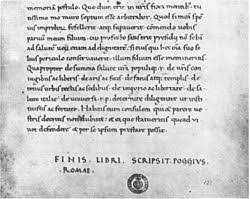 memoria postulo. Que dum erit in uris fixa mentib. tu
tissimo me muro septum esse arbitrabor. Quod si meam spem
uis improbor fefellerit atq; supauerit: comendo uobis
paruum meum filium. cui profecto satis erit presidii no solu
ad salute ueru etiam ad dignitate. si eius qui hec oia suo so
lius periculo conseruarit. illum filium esse memineritis.
Quapropter de summa salute ura populiq; r. de uris con
iugibus ac liberis. de aris ac focis. de fanis atq; templis. de
totius urbis tectis ac sedibus. de imperio ac libertate. de sa
lute italie. de uniuersa r. p. decernite diligenter ut insti
tuistis ac fortiter. Habetis eum consulem qui & parere ue
stris decretis non dubitet: & ea que statueritis quoad ui
uet defendere & per se ipsum prestare possit.
FINIS. LIBRI. SCRIPSIT. POGGIVS.
ROMAE.